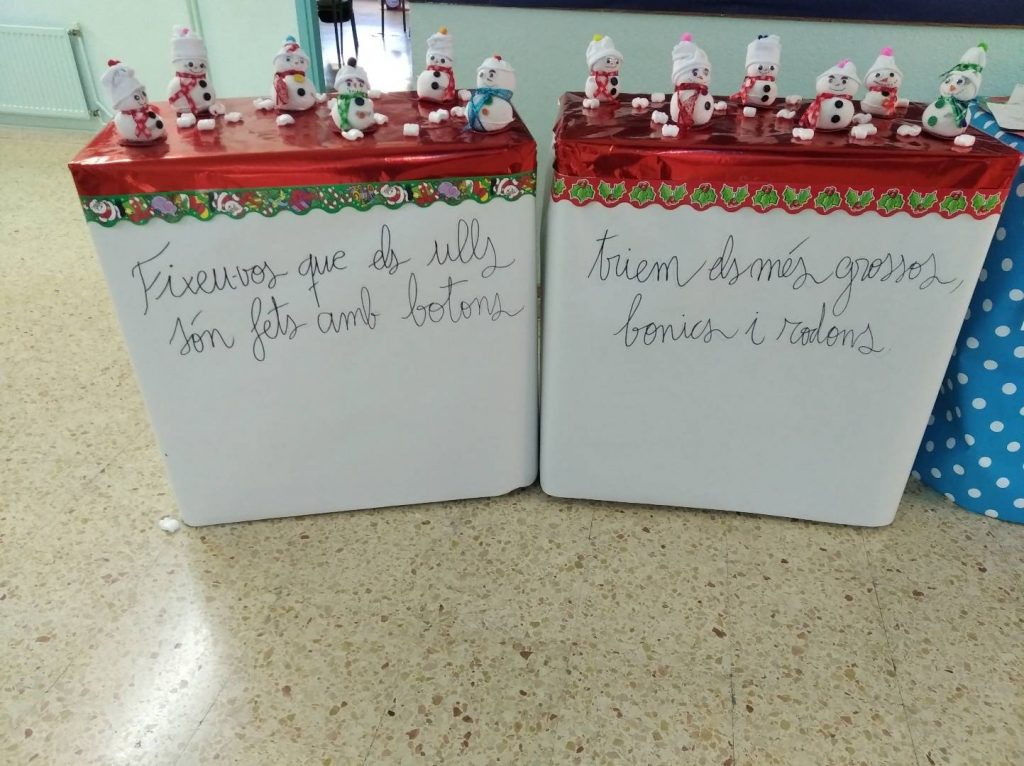 Fixeu-vos que els ulls
són fets amb botons
triem els més grossos,
bonics i rodons.